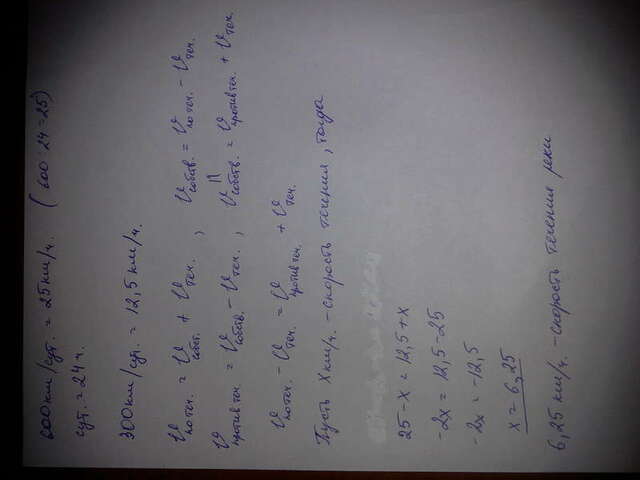 600км/сут. = 25км/ч. (600:24=25)
сут. = 24ч.
300км/сут. = 12,5км/ч.
Vпо теч. = Vсобств. + Vтеч. , Vсобств. = Vпо теч. - Vтеч.
Vпротив теч. = Vсобств. - Vтеч. , Vсобств. = Vпротив теч. + Vтеч.
Vпо теч. - Vтеч. = Vпротив теч. + Vтеч.
Пусть Х км/ч. - скорость течения, тогда
25-х = 12,5+х
-2х = 12,5-25
-2х = -12,5
х = 6,25
6,25 км/ч. - скорость течения реки